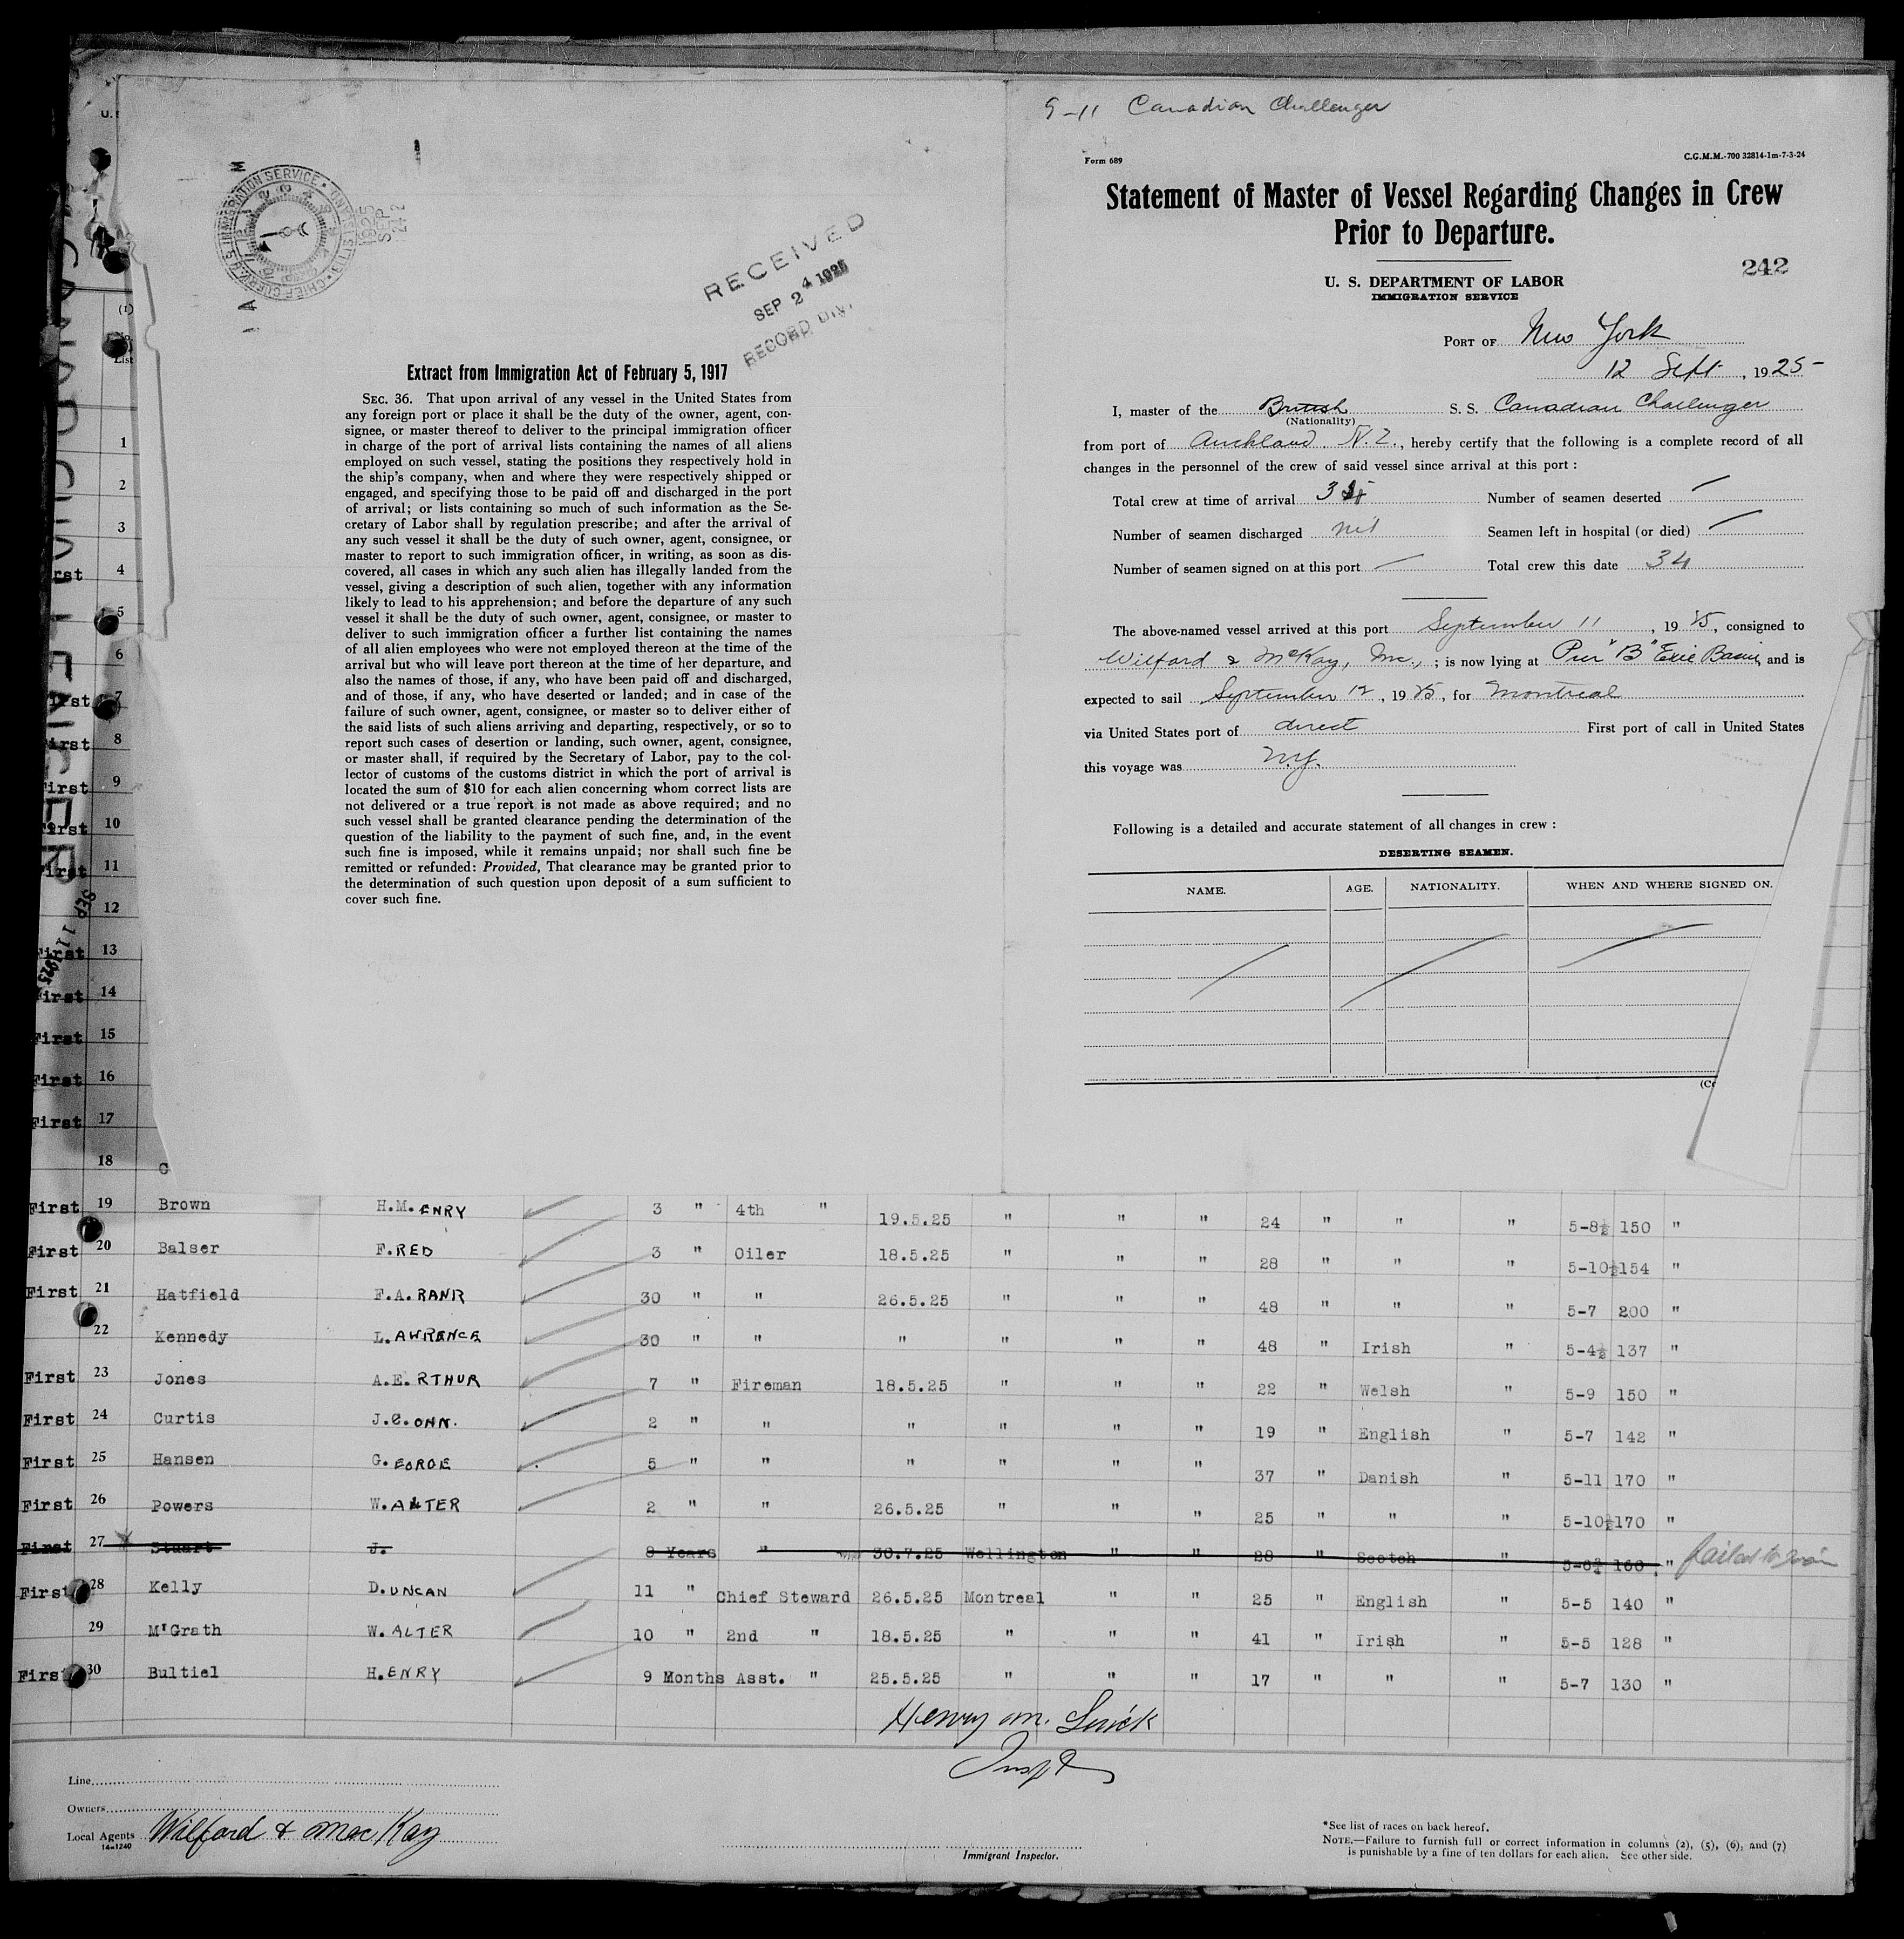 9-11 Canadian Challenger
Form 689
C.G.M.M.-700 32814-1m-7-3-24
Statement of Master of Vessel Regarding Changes in Crew
Prior to Departure.
242
U. S. DEPARTMENT OF LABOR
IMMIGRATION SERVICE
PORT OF New York
12 Sept , 1925
I, master of the British S. S. Canadian Challenger
(Nationality)
from port of Auckland N.Z., hereby certify that the following is a complete record of all
changes in the personnel of the crew of said vessel since arrival at this port :
Total crew at time of arrival 34 Number of seamen deserted /
Number of seamen discharged nil Seamen left in hospital (or died) /
Number of seamen signed on at this port / Total crew this date 34
The above-named vessel arrived at this port September 11 , 19 25, consigned to
Wilford & McKay, Inc., ; is now lying at Pier "B" Erie Basin, and is
expected to sail September 12 , 19 25, for Montreal
via United States port of direct First port of call in United States
this voyage was N.Y.
Following is a detailed and accurate statement of all changes in crew :
DESERTING SEAMEN.
NAME. AGE. NATIONALITY. WHEN AND WHERE SIGNED ON.
U.S. IMMIGRATION SERVICE • ELLIS ISLAND • CHIEF CLERK
1925
SEP
242
RECEIVED
SEP 24 1925
RECORD DIV.
Extract from Immigration Act of February 5, 1917
SEC. 36. That upon arrival of any vessel in the United States from
any foreign port or place it shall be the duty of the owner, agent, con-
signee, or master thereof to deliver to the principal immigration officer
in charge of the port of arrival lists containing the names of all aliens
employed on such vessel, stating the positions they respectively hold in
the ship's company, when and where they were respectively shipped or
engaged, and specifying those to be paid off and discharged in the port
of arrival; or lists containing so much of such information as the Se-
cretary of Labor shall by regulation prescribe; and after the arrival of
any such vessel it shall be the duty of such owner, agent, consignee, or
master to report to such immigration officer, in writing, as soon as dis-
covered, all cases in which any such alien has illegally landed from the
vessel, giving a description of such alien, together with any information
likely to lead to his apprehension; and before the departure of any such
vessel it shall be the duty of such owner, agent, consignee, or master to
deliver to such immigration officer a further list containing the names
of all alien employees who were not employed thereon at the time of the
arrival but who will leave port thereon at the time of her departure, and
also the names of those, if any, who have been paid off and discharged,
and of those, if any, who have deserted or landed; and in case of the
failure of such owner, agent, consignee, or master so to deliver either of
the said lists of such aliens arriving and departing, respectively, or so to
report such cases of desertion or landing, such owner, agent, consignee,
or master shall, if required by the Secretary of Labor, pay to the col-
lector of customs of the customs district in which the port of arrival is
located the sum of $10 for each alien concerning whom correct lists are
not delivered or a true report is not made as above required; and no
such vessel shall be granted clearance pending the determination of the
question of the liability to the payment of such fine, and, in the event
such fine is imposed, while it remains unpaid; nor shall such fine be
remitted or refunded: Provided, That clearance may be granted prior to
the determination of such question upon deposit of a sum sufficient to
cover such fine.
(1)
List
1
2
3
rst 4
5
6
irst 7
irst 8
First 9
irst 10
First 11
12
First 13
First 14
First 15
First 16
First 17
18
SEP 11 1925
First 19 Brown H.M.ENRY 3 " 4th " 19.5.25 " " " 24 " " " 5-8½ 150 "
First 20 Balser F.RED 3 " Oiler 18.5.25 " " " 28 " " " 5-10½ 154 "
First 21 Hatfield F.A.RANK 30 " " 26.5.25 " " " 48 " " " 5-7 200 "
22 Kennedy L.AWRENCE 30 " " " " " " 48 " Irish " 5-4½ 137 "
First 23 Jones A.E.RTHUR 7 " Fireman 18.5.25 " " " 22 " Welsh " 5-9 150 "
First 24 Curtis J.C.OHN. 2 " " " " " " 19 " English " 5-7 142 "
First 25 Hansen G.EORGE 5 " " " " " " 37 " Danish " 5-11 170 "
First 26 Powers W.ALTER 2 " " 26.5.25 " " " 25 " " " 5-10½ 170 "
First 27 Stuart J. 8 Years " 30.7.25 Wellington " " 28 " Scotch " 160 " failed to join
First 28 Kelly D.UNCAN 11 " Chief Steward 26.5.25 Montreal " " 25 " English " 5-5 140 "
29 M'Grath W.ALTER 10 " 2nd " 18.5.25 " " " 41 " Irish " 5-5 128 "
First 30 Bultiel H.ENRY 9 Months Asst. " 25.5.25 " " " 17 " " " 5-7 130 "
Henry M.
Insp
Line
Owners
Local Agents Wilford & MacKay
14-1240
Immigrant Inspector.
*See list of races on back hereof.
NOTE.—Failure to furnish full or correct information in columns (2), (5), (6), and (7)
is punishable by a fine of ten dollars for each alien. See other side.